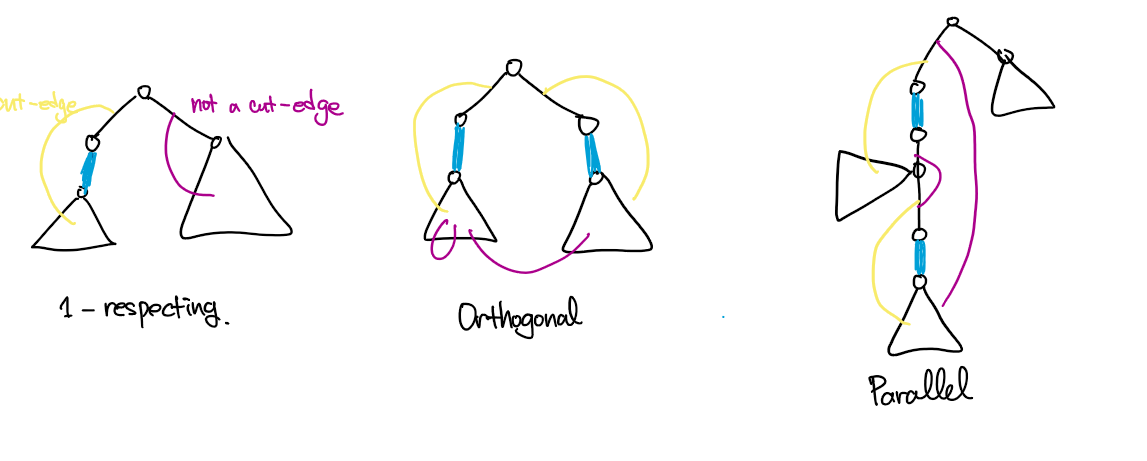 cut-edge
not a cut-edge
1 - respecting.
Orthogonal
Parallel